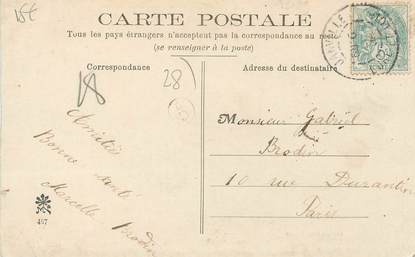 15€
CARTE POSTALE
Tous les pays étrangers n'acceptent pas la correspondance au recto
(se renseigner à la poste)
Correspondance
Adresse du destinataire
28
Amitiés
Bonne santé
Marcelle Brodin
Monsieur Gabriel
Brodin
10 rue Durantin
Paris
467